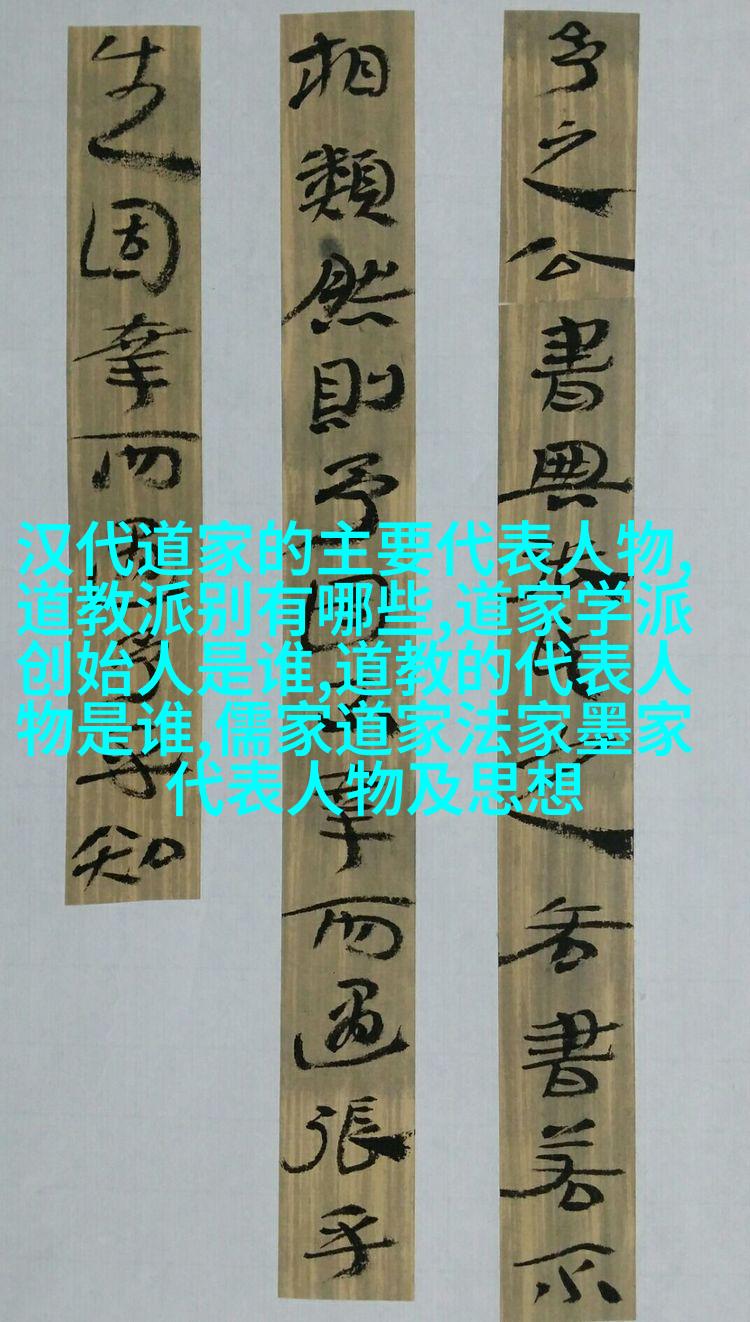 汉代道家的主要代表人物,
道教派别有哪些,道家学派
创始人是谁,道教的代表人
物是谁,儒家道家法家墨家
代表人物及思想
之公書與之吾書若不
相類然則予固幸而遇張乎
固幸而遇予乎知